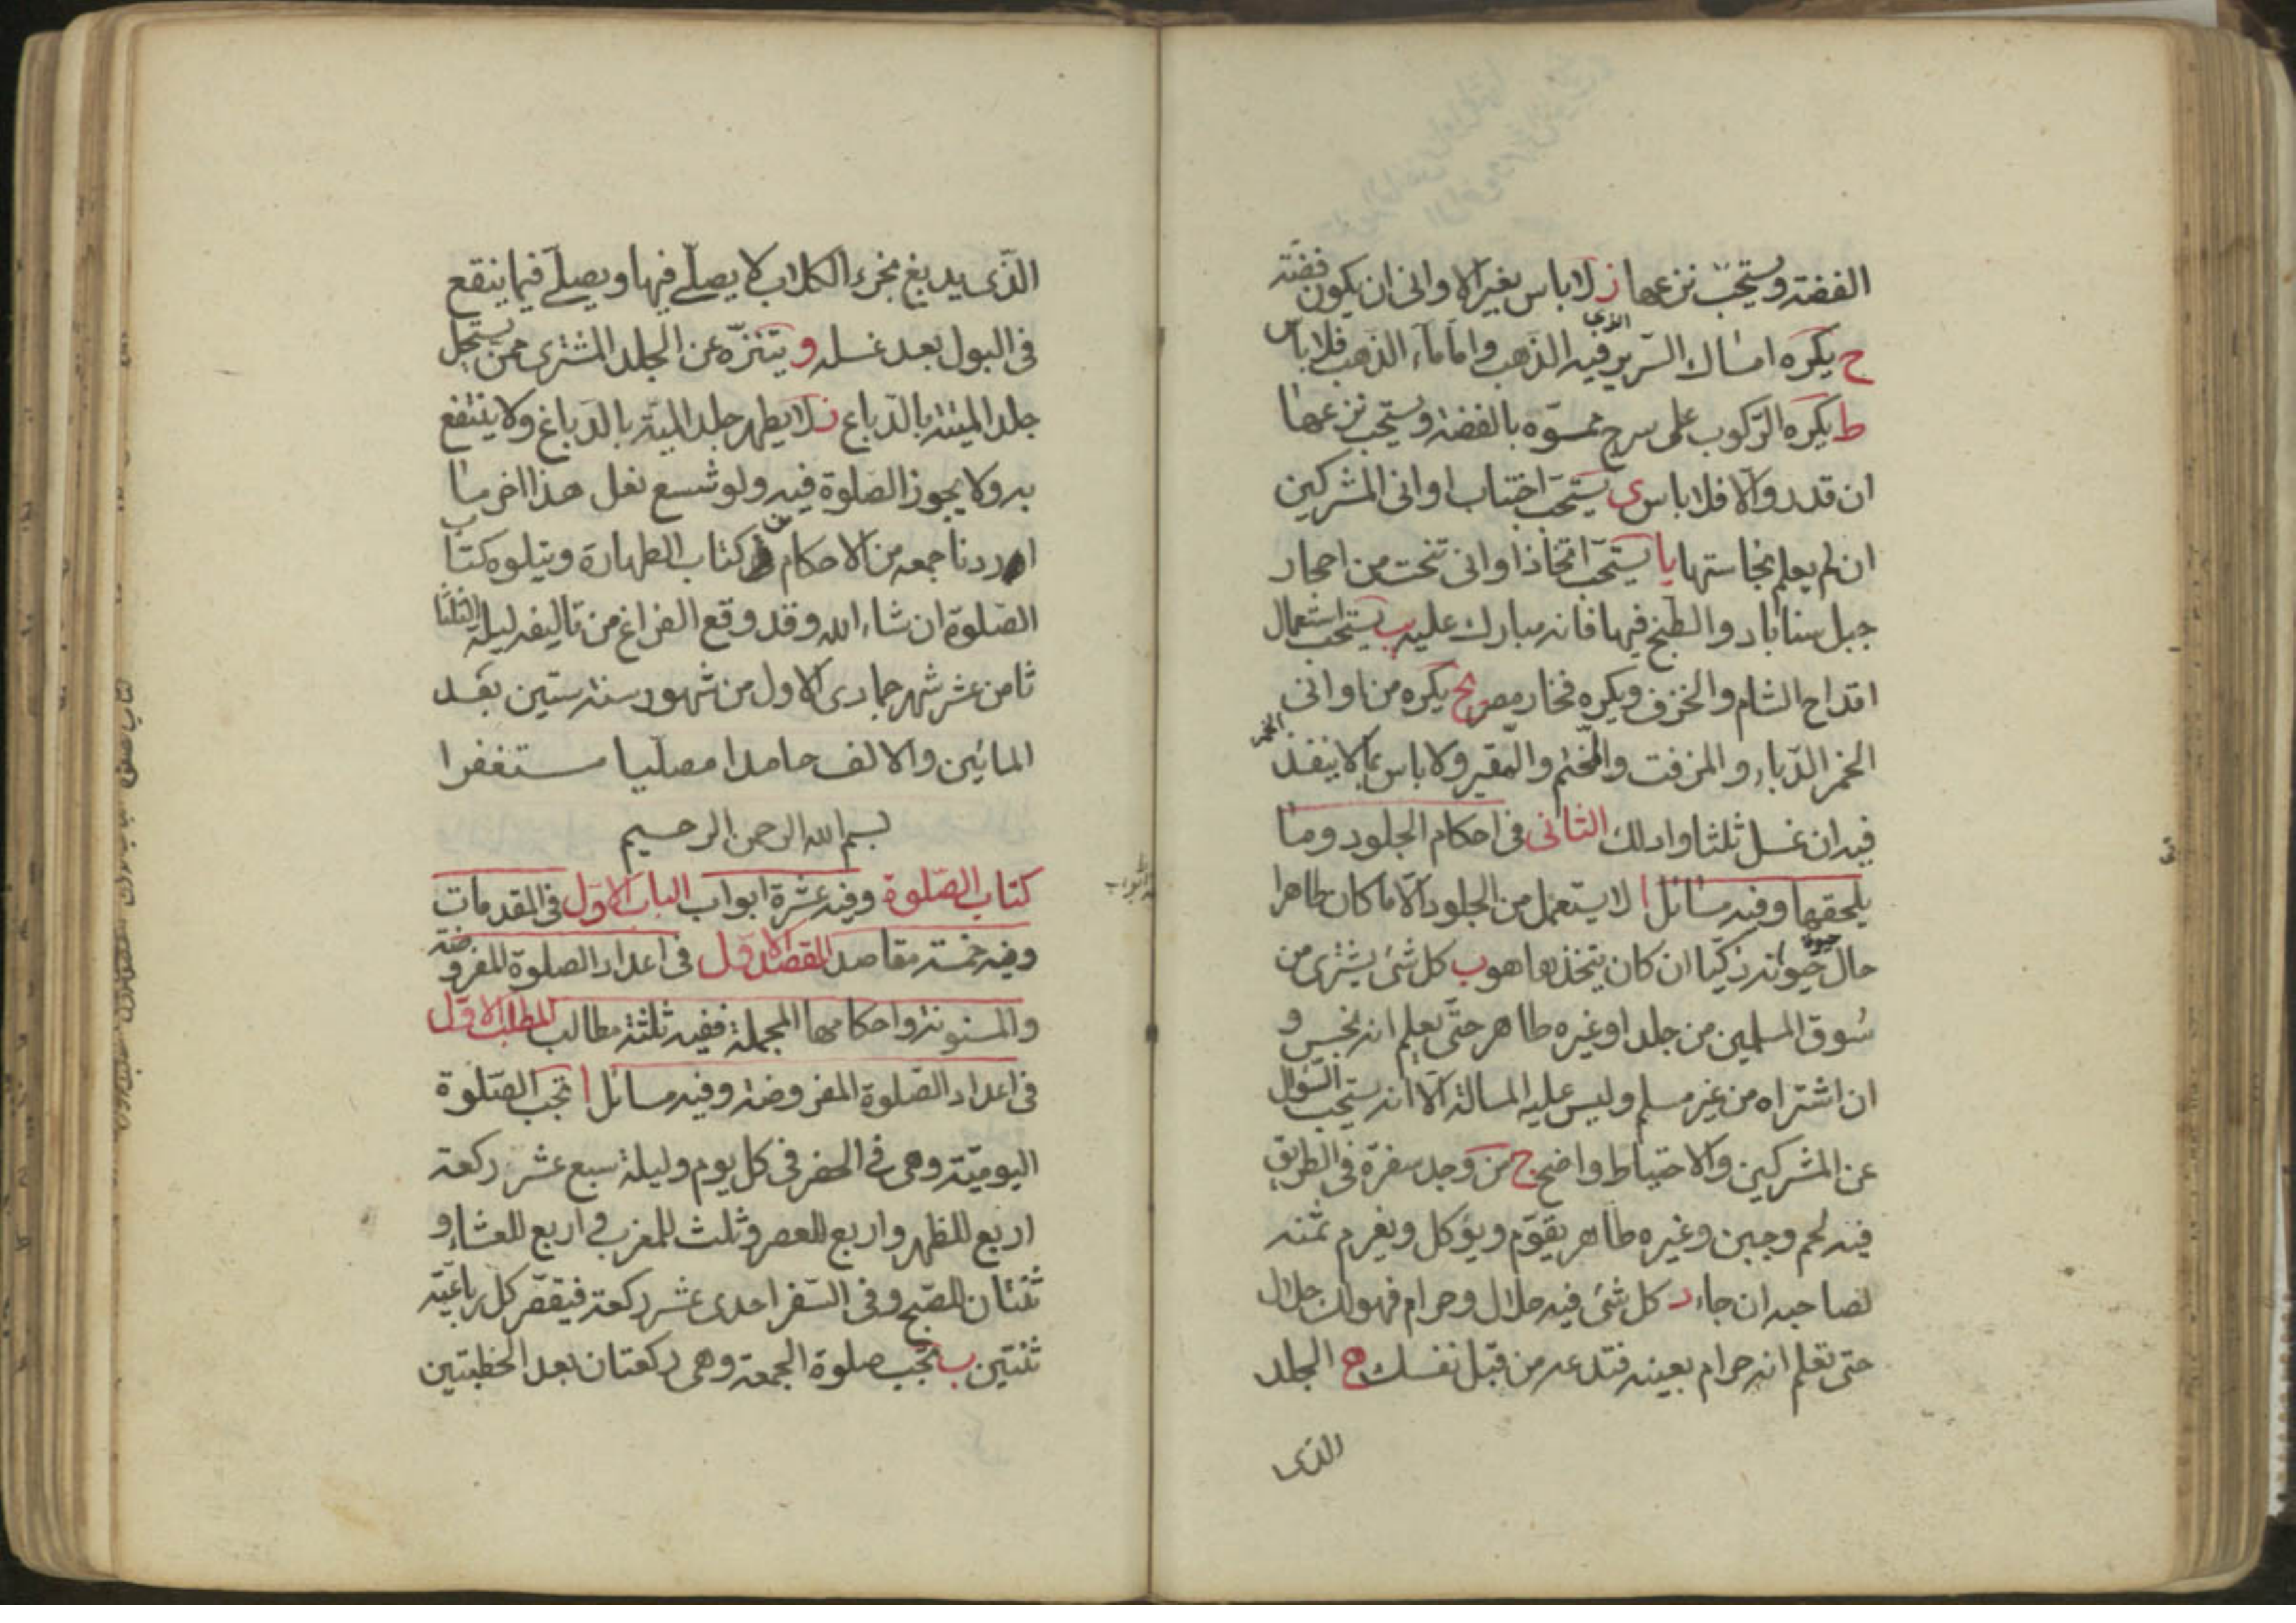 الفضة ويستحب نزعها ز لا باس بغير الاوانى ان يكون فضة
ح يكره امساك السرير الذى فيه الذهب واما ماء الذهب فلا باس
ط يكره الركوب على سرج مموه بالفضة ويستحب نزعها
ان قدر والا فلا باس ى يستحب اجتناب اوانى المشركين
ان لم يعلم نجاستها يا يستحب اتخاذ اوانى تنحت من احجار
جبل سناباد والطبخ فيها فانه مبارك عليه يب يستحب استعمال
اقداح الشام والخزف ويكره فخار مصر يج يكره من اوانى
الخمر الدباء والمزفت والختم والمقير ولا باس بما لا ينفذ الخمر
فيه ان غسل ثلثا وادلك الثانى فى احكام الجلود وما
يلحقها وفيه مسائل ا لا يستعمل من الجلود الا ما كان طاهرا
حال حيوة حيوانه ذكيا ان كان يتخذها هو ب كل شئ يشترى من
سوق المسلمين من جلد او غيره طاهر حتى يعلم انه نجس و
ان اشتراه من غير مسلم وليس عليه المسالة الا انه يستحب السؤال
عن المشركين والاحتياط واضح ج من وجد سفرة فى الطريق
فيه لحم وجبن وغيره طاهر يقوم ويؤكل ويغرم ثمنه
لصاحبه ان جاء د كل شئ فيه حلال وحرام فهو لك حلال
حتى تعلم انه حرام بعينه فتدعه من قبل نفسك ه الجلد
الذى
الذى يدبغ بخرء الكلاب لا يصلى فيها ويصلى فيما ينقع
فى البول بعد غسله و يتنزه عن الجلد المشترى ممن يستحل
جلد الميتة بالدباغ ز لا يطهر جلد الميتة بالدباغ ولا ينتفع
به ولا يجوز الصلوة فيه ولو شسع نعل هذا اخر ما
اردنا جمعه من الاحكام فى كتاب الطهارة ويتلوه كتاب
الصلوة ان شاء الله وقد وقع الفراغ من تاليفه ليلة الثلثا
ثامن عشر شهر جمادى الاول من شهور سنة ستين بعد
المائين والالف حامدا مصليا مستغفرا
بسم الله الرحمن الرحيم
كتاب الصلوة وفيه عشرة ابواب الباب الاول فى المقدمات
وفيه خمسة مقاصد المقصد الاول فى اعداد الصلوة المفروضة
والمسنونة واحكامها المجملة ففيه ثلثة مطالب المطلب الاول
فى اعداد الصلوة المفروضة وفيه مسائل ا تجب الصلوة
اليومية وهى فى الحضر فى كل يوم وليلة سبع عشر ركعة
اربع للظهر واربع للعصر وثلث للمغرب واربع للعشاء و
ثنتان للصبح وفى السفر احدى عشر ركعة فيقصر كل رباعية
ثنتين ب تجب صلوة الجمعة وهى ركعتان بعد الخطبتين